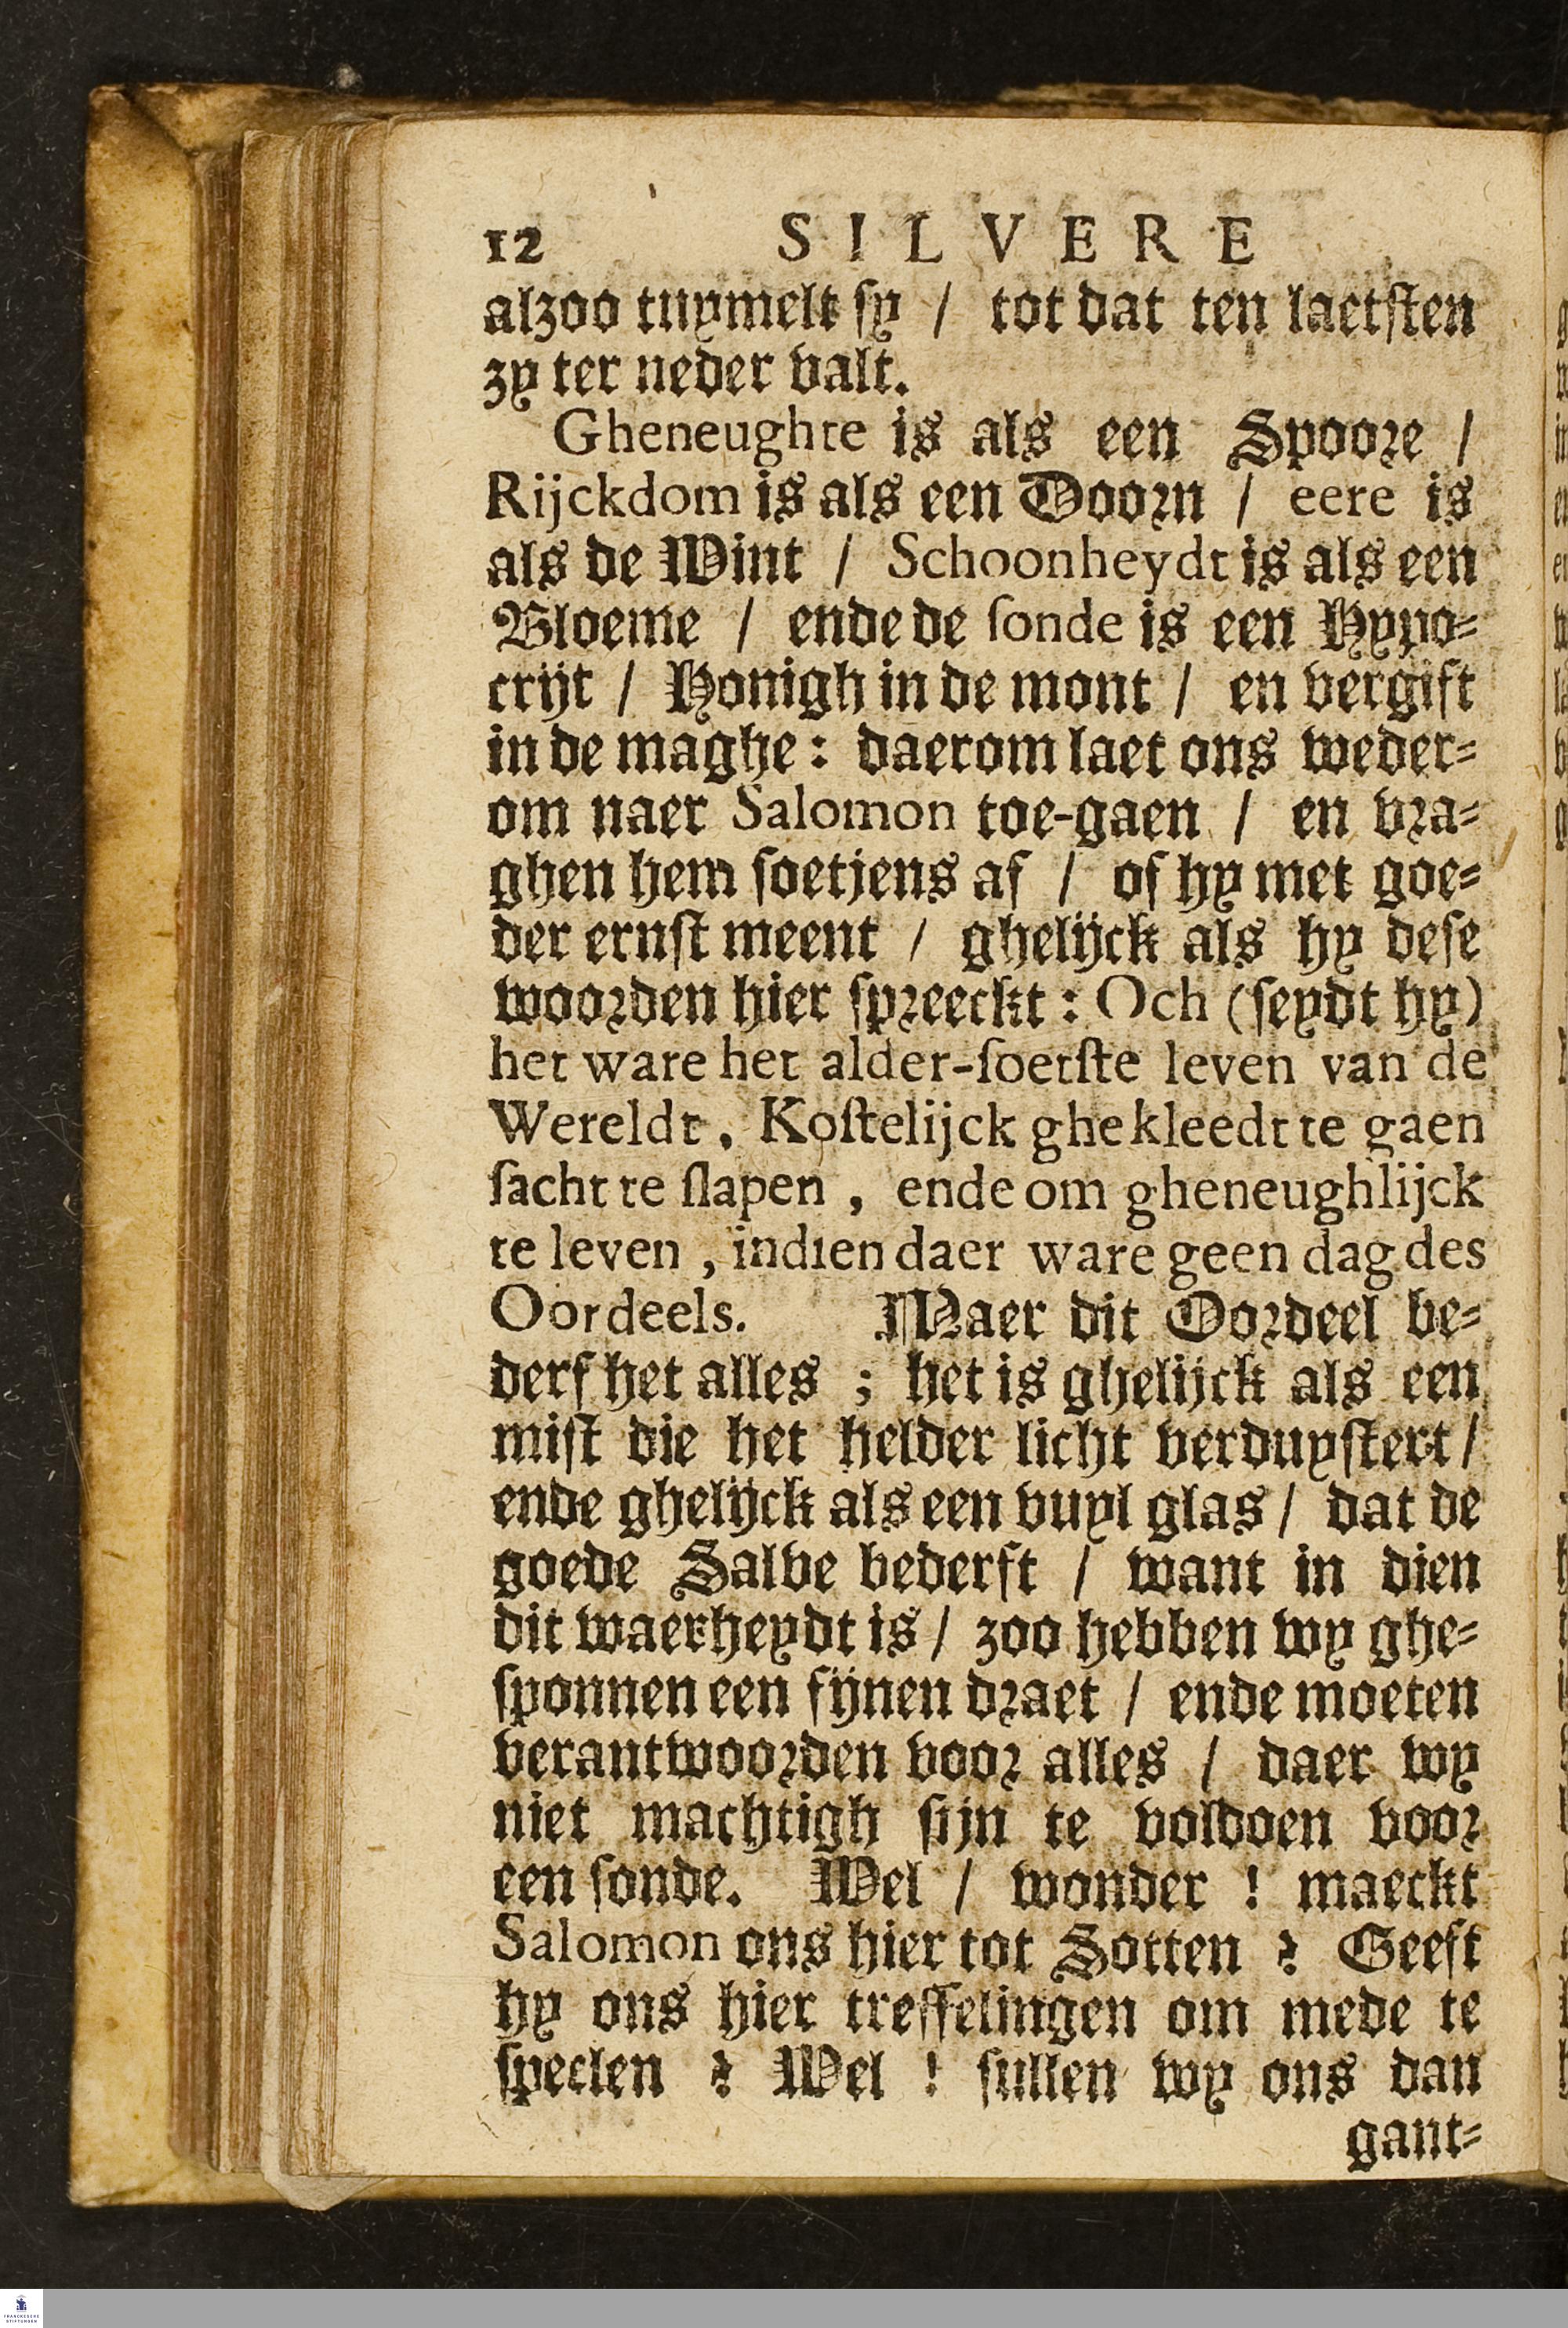 12 SILVERE
alzoo tuymelt sy / tot dat ten laetsten
zy ter neder valt.
Gheneughte is als een Spoore /
Rijckdom is als een Doorn / eere is
als de Wint / Schoonheydt is als een
Bloeme / ende de sonde is een Hypo-
crijt / Honigh in de mont / en vergift
in de maghe: daerom laet ons weder-
om naer Salomon toe-gaen / en vra-
ghen hem soetjens af / of hy met goe-
der ernst meent / ghelijck als hy dese
woorden hier spreeckt: Och (seydt hy)
het ware het alder-soetste leven van de
Wereldt, Kostelijck ghekleedt te gaen
sacht te slapen, ende om gheneughlijck
te leven, indien daer ware geen dag des
Oordeels. Maer dit Oordeel be-
derf het alles; het is ghelijck als een
mist die het helder licht verduystert /
ende ghelijck als een vuyl glas / dat de
goede Salve bederft / want in dien
dit waerheydt is / zoo hebben wy ghe-
sponnen een fijnen draet / ende moeten
verantwoorden voor alles / daer wy
niet machtigh sijn te voldoen voor
een sonde. Wel / wonder! maeckt
Salomon ons hier tot Sotten? Geeft
hy ons hier treffelingen om mede te
speelen? Wel! sullen wy ons dan
gant-
FRANCKESCHE
STIFTUNGEN